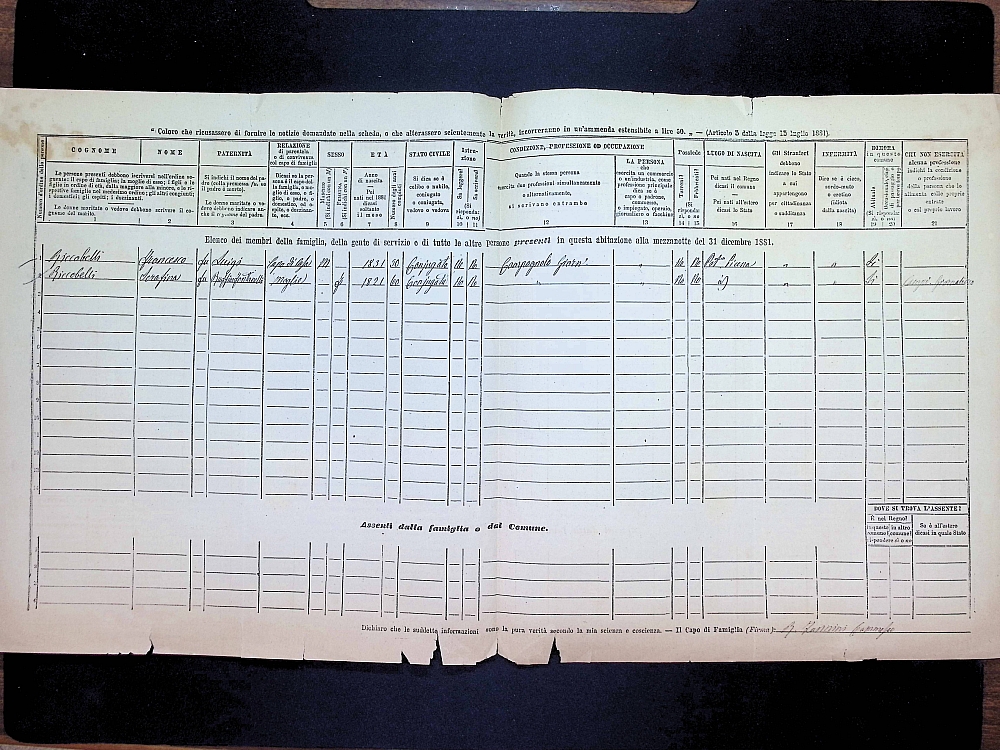 " Coloro che ricusassero di fornire le notizie domandate nella scheda, o che alterassero scientemente la verità, incorreranno in un'ammenda estensibile a lire 50. „ — (Articolo 3 della legge 15 luglio 1881).
COGNOME
1
Le persone presenti debbono iscriversi nell'ordine seguente: il capo di famiglia; la moglie di esso; i figli e le figlie in ordine di età, dalla maggiore alla minore, e le rispettive famiglie nel medesimo ordine; gli altri conviventi; i domestici; gli ospiti; i dozzinanti.
Le donne maritate o vedove debbono scrivere il cognome del marito.
NOME
2
PATERNITÀ
Si indichi il nome del padre (colla premessa fu, se il padre è morto).
Le donne maritate o vedove debbono indicare anche il cognome del padre.
3
RELAZIONE
di parentela
o di convivenza
col capo di famiglia
Dicasi se la persona è il capo della famiglia, o moglie di esso, o figlio, o padre, o domestico, od ospite, o dozzinante, ecc.
4
SESSO
5
6
ETÀ
Anno di nascita
Pei nati nel 1881 dicasi soltanto il mese
7
8
STATO CIVILE
Si dice se è celibe o nubile, coniugato o coniugata, vedovo o vedova
9
Istruzione
Sa leggere?
Sa scrivere?
(Si risponda: si, o no)
10
11
CONDIZIONE, PROFESSIONE OD OCCUPAZIONE
Quando la stessa persona
esercita due professioni simultaneamente
o alternativamente,
si scrivano entrambe
12
LA PERSONA
che
esercita un commercio
od un'industria, come
professione principale
dica se è
capo o padrone,
commesso,
o impiegato, operaio,
giornaliero o facchino
13
Possiede
Terreni?
Fabbricati?
14
15
LUOGO DI NASCITA
Pei nati nel Regno
dicasi il comune
Pei nati all'estero
dicasi lo Stato
16
Gli Stranieri
debbono
indicare lo Stato
a cui
appartengono
per cittadinanza
o sudditanza
17
INFERMITÀ
Dire se è cieco,
sordo-muto
o cretino
(idiota
dalla nascita)
18
DIMORA
in questo
comune
Abituale
19
20
CHI NON ESERCITA
alcuna professione
indichi la condizione
o professione
della persona che lo
alimenta colle proprie
entrate
o col proprio lavoro
21
Elenco dei membri della famiglia, della gente di servizio e di tutte le altre persone presenti in questa abitazione alla mezzanotte del 31 dicembre 1881.
1 Francesco fu Luigi Capo di Casa M 1831 50 Conjugato No No No No „ „ Si
2 Serafina fu Moglie f 1821 60 Conjugata No No „ „ No No „ „ Si
Assenti dalla famiglia o dal Comune.
DOVE SI TROVA L'ASSENTE?
È nel Regno?
Se è all'estero
dicasi in quale Stato
Dichiaro che le suddette informazioni sono la pura verità secondo la mia scienza e coscienza. — Il Capo di Famiglia (Firma):